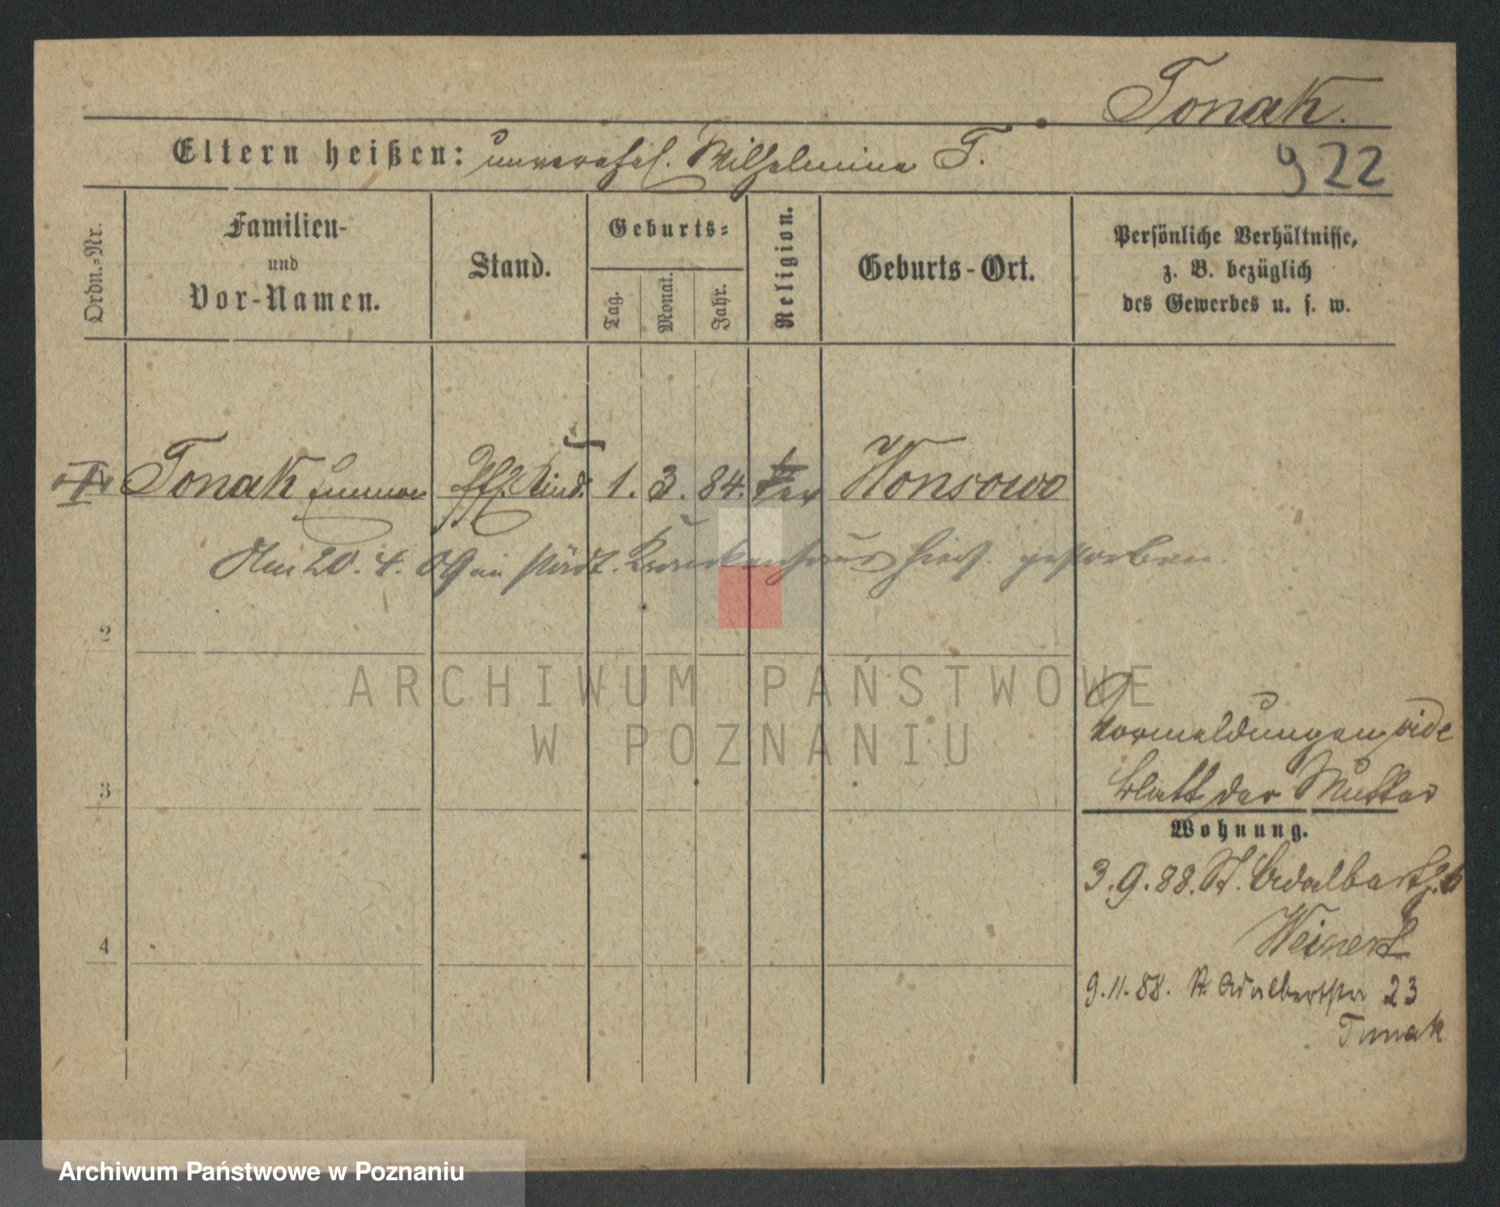 Tonak.
Eltern heißen: unverehel. Wilhelmine T.
922
Ordn.-Nr.
Familien-
und
Vor-Namen.
Stand.
Geburts-
Tag.
Monat.
Jahr.
Religion.
Geburts-Ort.
Persönliche Verhältnisse,
z. B. bezüglich
des Gewerbes u. s. w.
Tonak 1. 3. 84. Wonsowo
Am 20. 4. 09 im städt. Krankenhaus hies. gestorben.
2
3
4
Vormeldungen vide
Blatt der Mutter
Wohnung.
3.9.88. St. Adalbertst. 6
Weinert
9.11.88. St. Adalbertstr 23
Tonak
ARCHIWUM PAŃSTWOWE
W POZNANIU
Archiwum Państwowe w Poznaniu